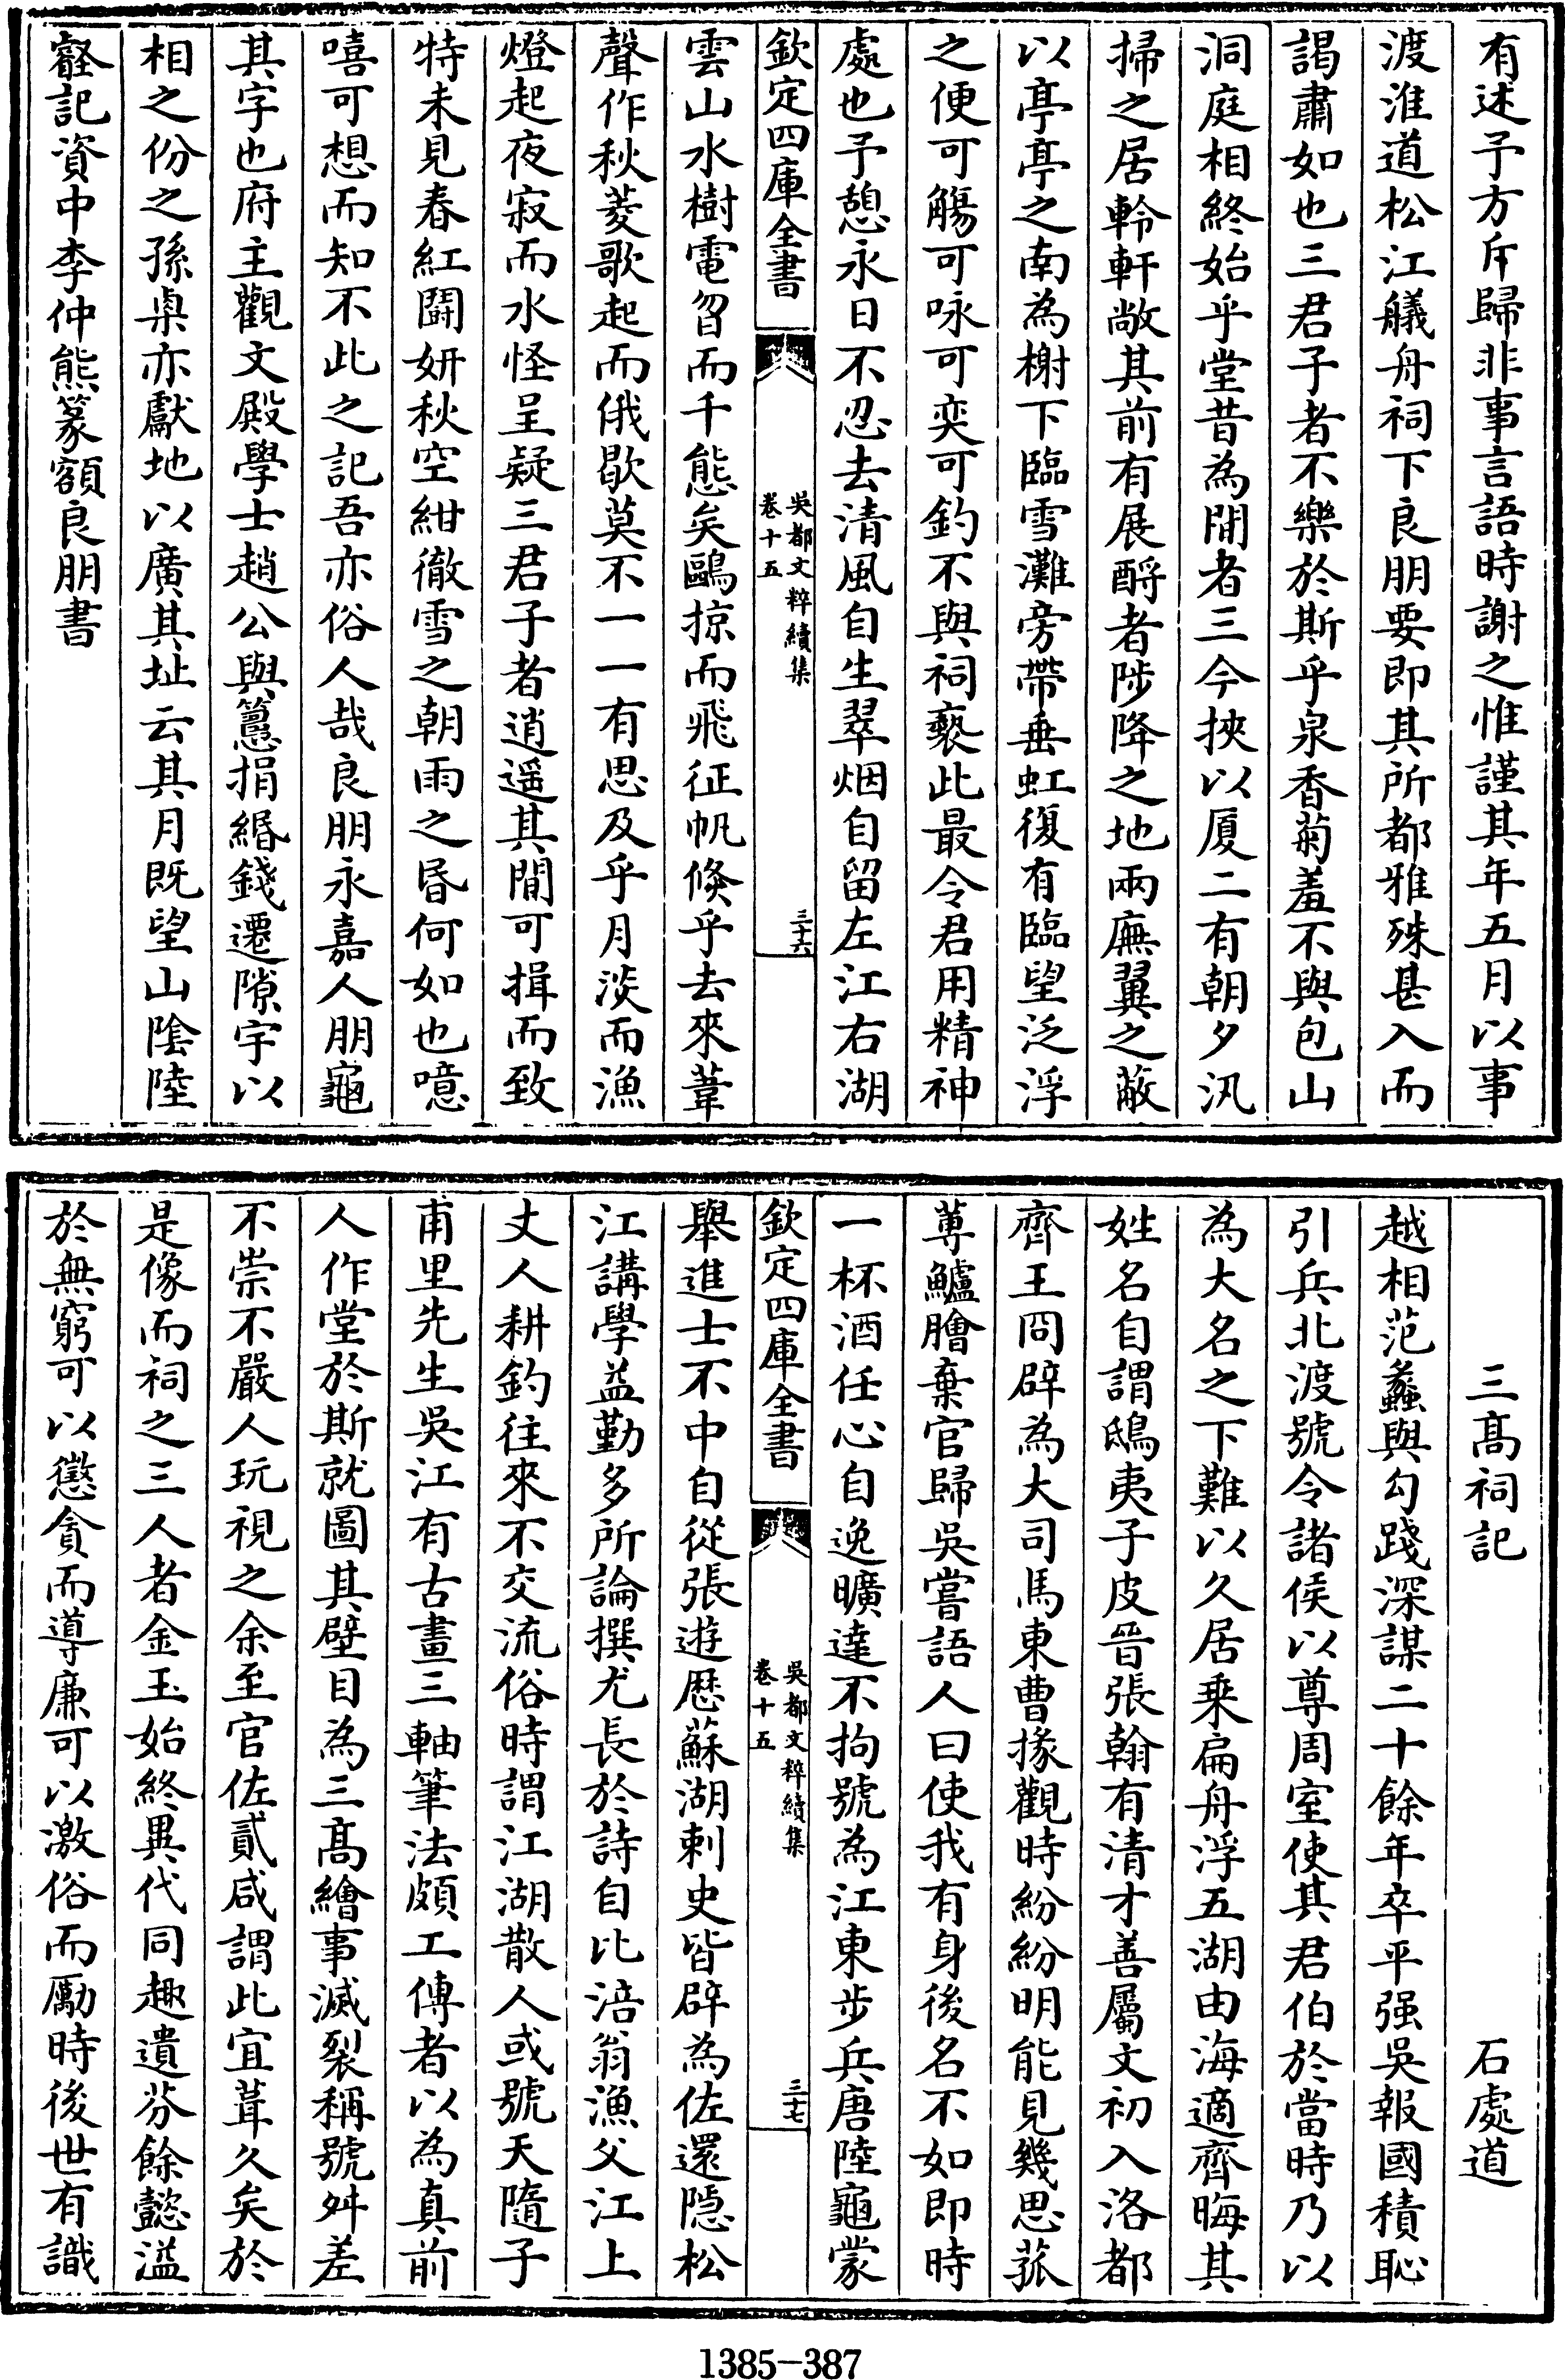 有述予方斥歸非事言語時謝之惟謹其年五月以事
渡淮道松江艤舟祠下良朋要即其所都雅殊甚入而
謁肅如也三君子者不樂於斯乎泉香菊羞不與包山
洞庭相終始乎堂昔為間者三今挾以厦二有朝夕汛
掃之居軨軒敞其前有展酹者陟降之地兩廡翼之蔽
以亭亭之南為榭下臨雪灘旁帶垂虹復有臨望泛浮
之便可觴可咏可奕可釣不與祠褻此最令君用精神
處也予憩永日不忍去清風自生翠烟自留左江右湖
欽定四庫全書
吳都文粹續集
卷十五
三十六
雲山水樹電曶而千態矣鷗掠而飛征帆倏乎去來葦
聲作秋菱歌起而俄歇莫不一一有思及乎月淡而漁
燈起夜寂而水怪呈疑三君子者逍遥其間可揖而致
特未見春紅鬪妍秋空紺徹雪之朝雨之昏何如也噫
嘻可想而知不此之記吾亦俗人哉良朋永嘉人朋龜
其字也府主觀文殿學士趙公與𥲅捐緡錢遷隙宇以
相之份之孫㮚亦獻地以廣其址云其月既望山陰陸
叡記資中李仲熊篆額良朋書
三髙祠記
石處道
越相范蠡與勾踐深謀二十餘年卒平强吳報國積恥
引兵北渡號令諸侯以尊周室使其君伯於當時乃以
為大名之下難以久居乗扁舟浮五湖由海適齊晦其
姓名自謂鴟夷子皮晉張翰有清才善屬文初入洛都
齊王冏辟為大司馬東曹掾觀時紛紛明能見幾思菰
蓴鱸膾棄官歸吳嘗語人曰使我有身後名不如即時
一杯酒任心自逸曠達不拘號為江東步兵唐陸龜蒙
欽定四庫全書
吳都文粹續集
卷十五
三十七
舉進士不中自從張遊歴蘇湖刺史皆辟為佐還隱松
江講學益勤多所論撰尤長於詩自比涪翁漁父江上
丈人耕釣往來不交流俗時謂江湖散人或號天隨子
甫里先生吳江有古畫三軸筆法頗工傳者以為真前
人作堂於斯就圖其壁目為三髙繪事滅裂稱號舛差
不崇不嚴人玩視之余至官佐貳咸謂此宜葺久矣於
是像而祠之三人者金玉始終異代同趣遺芬餘懿溢
於無窮可以懲貪而導廉可以激俗而勵時後世有識
1385-387